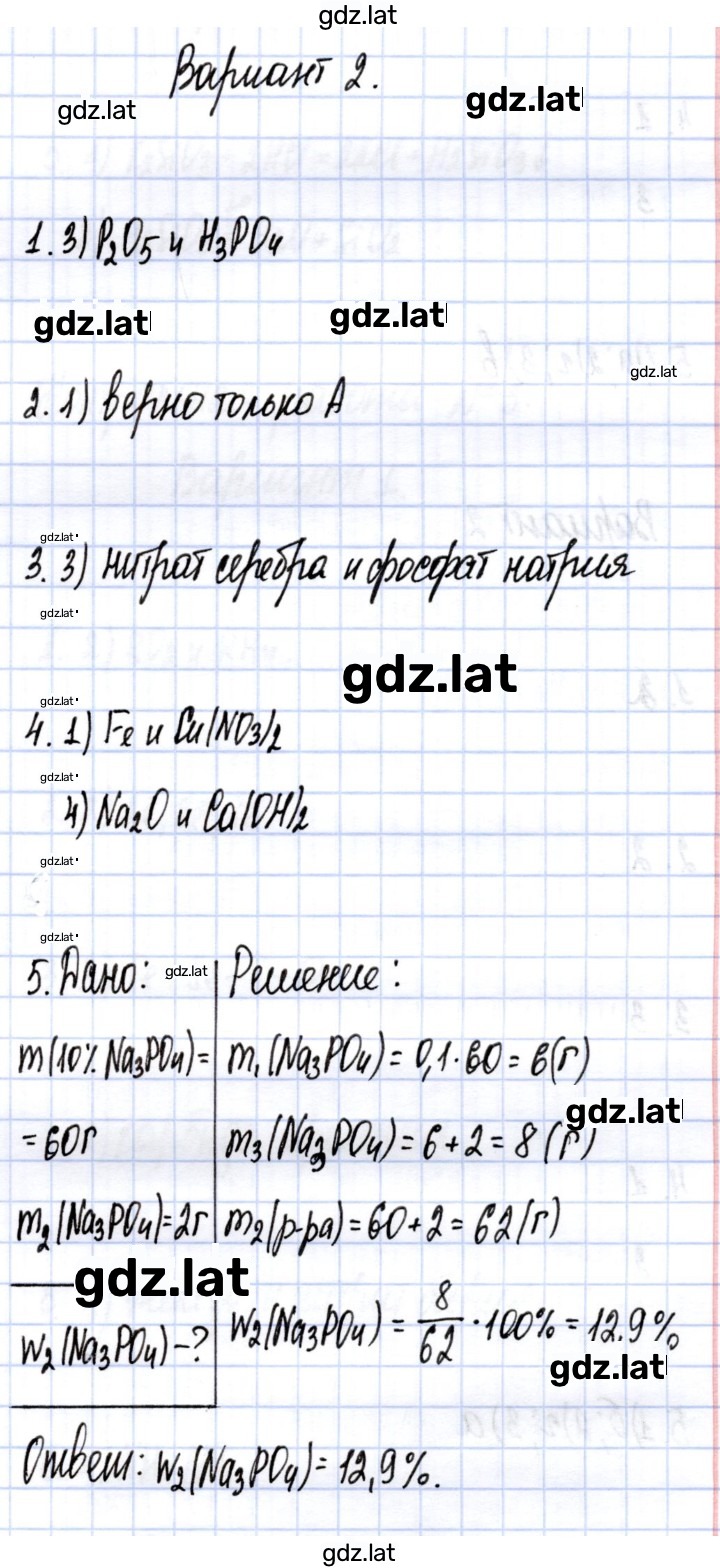 gdz.lat
Вариант 2.
gdz.lat
gdz.lat
1. 3) P₂O₅ и H₃PO₄
gdz.lat
gdz.lat
gdz.lat
2. 1) верно только А
gdz.lat
3. 3) нитрат серебра и фосфат натрия
gdz.lat
gdz.lat
gdz.lat
4. 1) Fe и Cu(NO₃)₂
gdz.lat
4) Na₂O и Ca(OH)₂
gdz.lat
gdz.lat
5. Дано: gdz.lat Решение:
m(10% Na₃PO₄)= m₁(Na₃PO₄) = 0,1·60 = 6(г)
gdz.lat
=60г m₃(Na₃PO₄) = 6+2 = 8 (г)
m₂(Na₃PO₄)=2г m₂(р-ра) = 60+2 = 62(г)
gdz.lat
w₂(Na₃PO₄)-? w₂(Na₃PO₄) = 8/62 · 100% = 12.9%
gdz.lat
Ответ: w₂(Na₃PO₄) = 12,9%.
gdz.lat